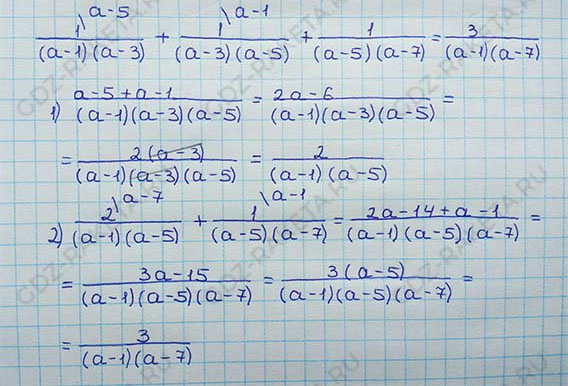 1\a-5/((a-1)(a-3)) + 1\a-1/((a-3)(a-5)) + 1/((a-5)(a-7)) = 3/((a-1)(a-7))
1) (a-5+a-1)/((a-1)(a-3)(a-5)) = (2a-6)/((a-1)(a-3)(a-5)) =
= 2(a-3)/((a-1)(a-3)(a-5)) = 2/((a-1)(a-5))
2) 2\a-7/((a-1)(a-5)) + 1\a-1/((a-5)(a-7)) = (2a-14+a-1)/((a-1)(a-5)(a-7)) =
= (3a-15)/((a-1)(a-5)(a-7)) = 3(a-5)/((a-1)(a-5)(a-7)) =
= 3/((a-1)(a-7))
GDZ-RAKETA.RU